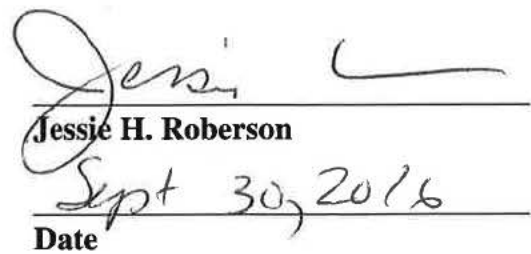 Jessie
Jessie H. Roberson
Sept 30, 2016
Date